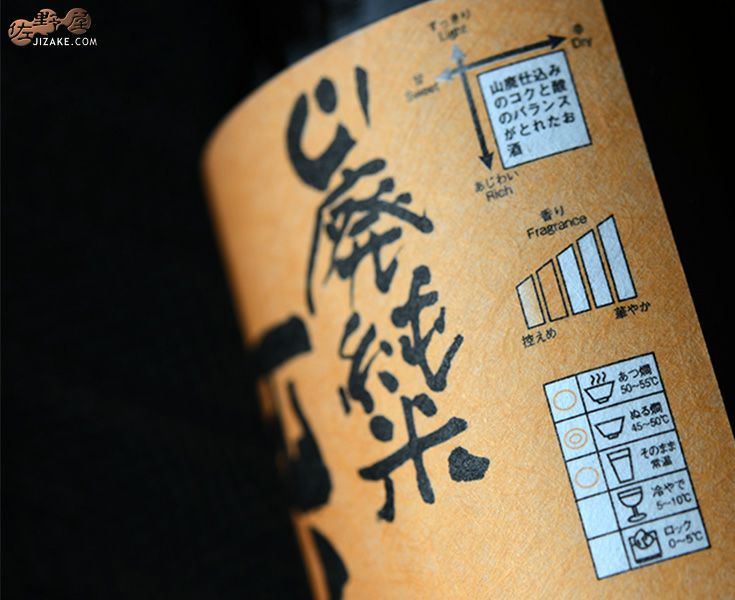 佐野屋
JIZAKE.COM
すっきり
Light
辛
Dry
甘
Sweet
山廃仕込み
のコクと酸
のバランス
がとれたお
酒
あじわい
Rich
山廃純米
香り
Fragrance
控えめ
華やか
あつ燗
50~55℃
ぬる燗
45~50℃
そのまま
常温
冷やで
5~10℃
ロック
0~5℃